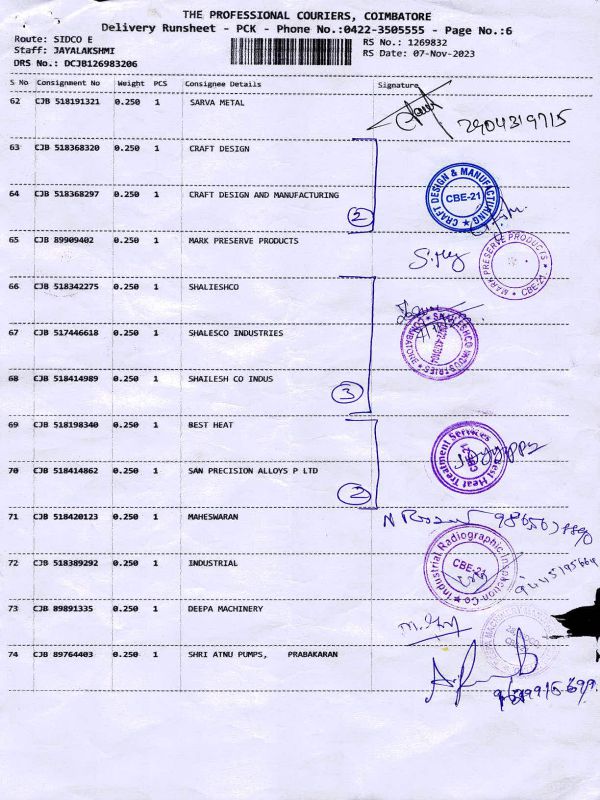 THE PROFESSIONAL COURIERS, COIMBATORE
Delivery Runsheet - PCK - Phone No.:0422-3505555 - Page No.:6
Route: SIDCO E
Staff: JAYALAKSHMI
DRS No.: DCJB126983206
RS No.: 1269832
RS Date: 07-Nov-2023
S No Consignment No Weight PCS Consignee Details Signature
62 CJB 518191321 0.250 1 SARVA METAL
63 CJB 518368320 0.250 1 CRAFT DESIGN
64 CJB 518368297 0.250 1 CRAFT DESIGN AND MANUFACTURING 2
CRAFT DESIGN & MANUFACTURING CBE-21
65 CJB 89909402 0.250 1 MARK PRESERVE PRODUCTS
MARK PRESERVE PRODUCTS CBE-21
66 CJB 518342275 0.250 1 SHALIESHCO
67 CJB 517446618 0.250 1 SHALESCO INDUSTRIES
68 CJB 518414989 0.250 1 SHAILESH CO INDUS 3
69 CJB 518198340 0.250 1 BEST HEAT
Best Heat Treatment Services
70 CJB 518414862 0.250 1 SAN PRECISION ALLOYS P LTD 2
71 CJB 518420123 0.250 1 MAHESWARAN
72 CJB 518389292 0.250 1 INDUSTRIAL
Industrial Radiographic Inspection Co CBE-21
73 CJB 89891335 0.250 1 DEEPA MACHINERY
74 CJB 89764403 0.250 1 SHRI ATNU PUMPS, PRABAKARAN